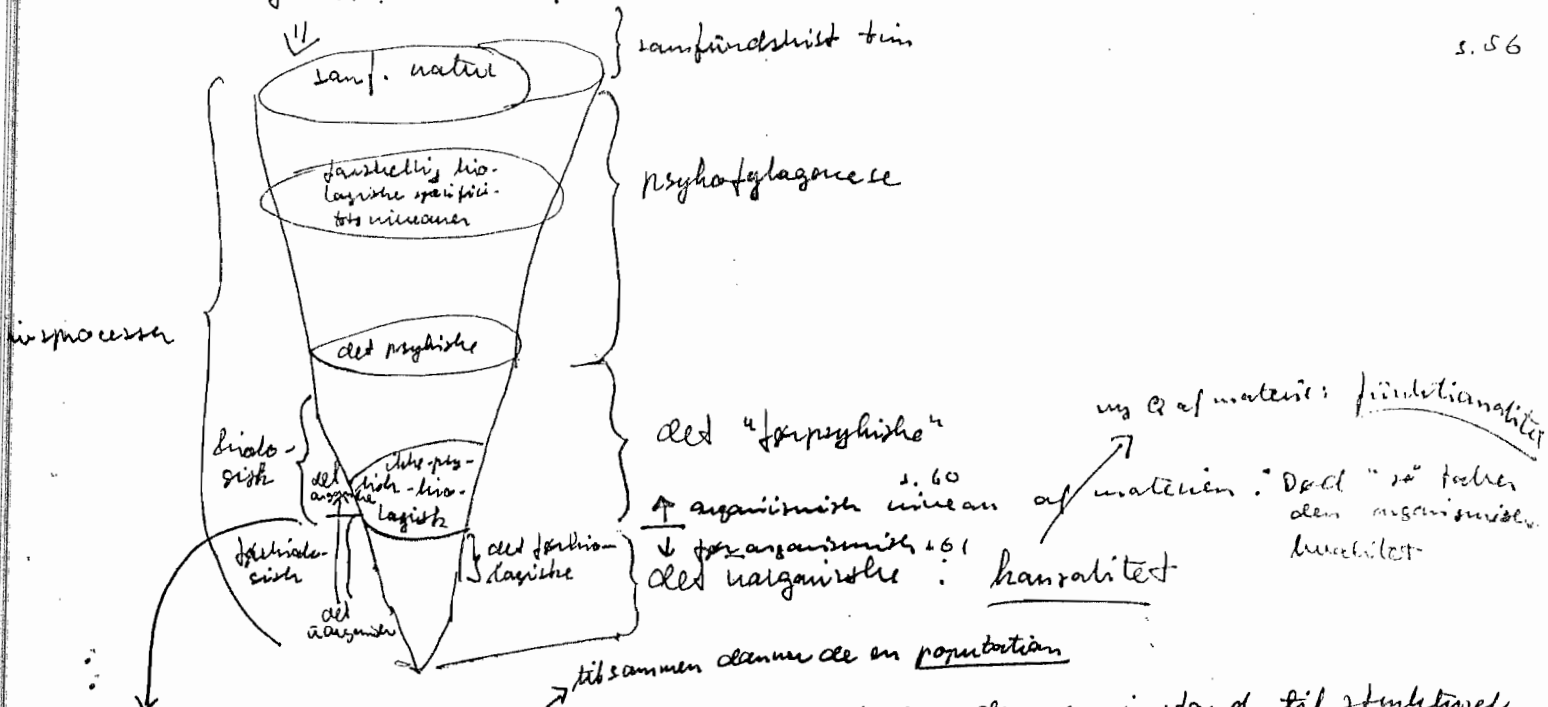 samfundshist trin
s. 56
samf. natur
forskellig bio-
logiske specifici-
tets niveauer
psykofylogenese
livsprocesser
det psykiske
det "førpsykiske"
ny Q af materie: funktionalitet
biolo-
gisk
det
organiske
ikke-psy-
kisk-bio-
logisk
s. 60
↑ organismisk niveau af materien : Død "så" taber
den organismiske
kvalitet
↓ førorganismisk s 61
førbiolo-
gisk
det førbio-
logiske
det uorganiske : kausalitet
det
uorganisk
tilsammen danner de en population
i stand til